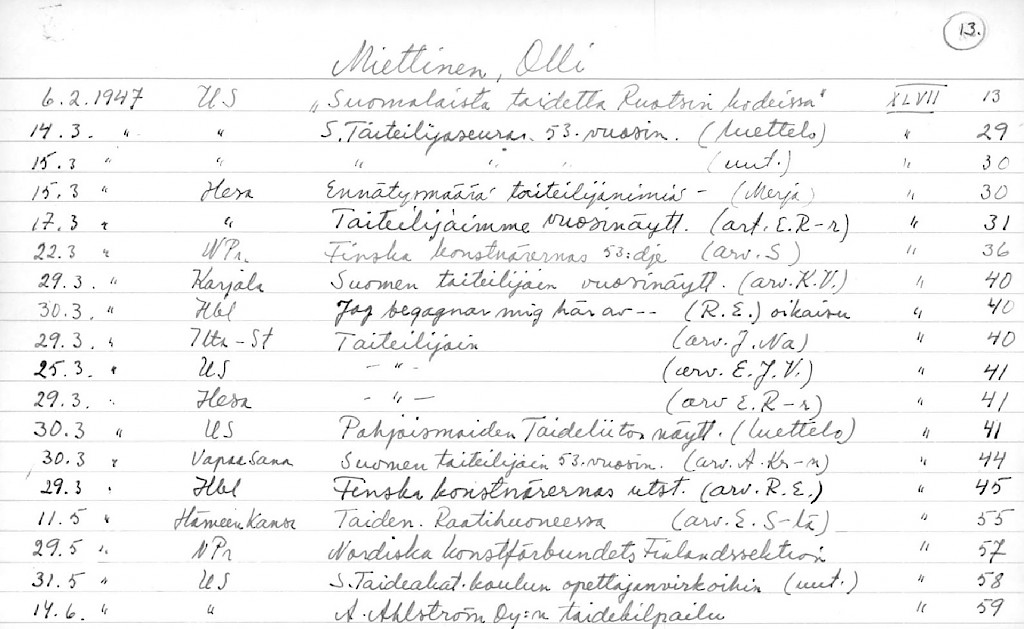 13.
Miettinen, Olli
6.2.1947 US "Suomalaista taidetta Ruotsin kodeissa" XLVII 13
14.3. " " S. Taiteilijaseuran 53. vuosin. (luettelo) " 29
15.3 " " " " " (uut.) " 30
15.3 " Hesa Ennätysmäärä taiteilijanimiä - (Merja) " 30
17.3 " " Taiteilijaimme vuosinäytt. (art. E.R-r) " 31
22.3 " NPr. Finska konstnärernas 53:dje (arv. S) " 36
29.3. " Karjala Suomen taiteilijain vuosinäytt. (arv. K.V.) " 40
30.3. " Hbl Jag begagnar mig här av -- (R.E.) oikaisu " 40
29.3. " Ilta-St Taiteilijain (arv. J. Na) " 40
25.3. " US - " - (arv. E.J.V.) " 41
29.3. " Hesa - " - (arv E.R-r) " 41
30.3 " US Pohjoismaiden Taideliiton näytt. (luettelo) " 41
30.3 " Vapaa Sana Suomen taiteilijain 53. vuosin. (arv. A. Kr-n) " 44
29.3 " Hbl Finska konstnärernas utst. (arv. R.E.) " 45
11.5 " Hämeen Kansa Taiden. Raatihuoneessa (arv. E. S-lä) " 55
29.5 " NPr Nordiska konstförbundets Finlandssektion " 57
31.5 " US S. Taideakat. koulun opettajanvirkoihin (uut.) " 58
14.6. " " A. Ahlström Oy:n taidekilpailu " 59